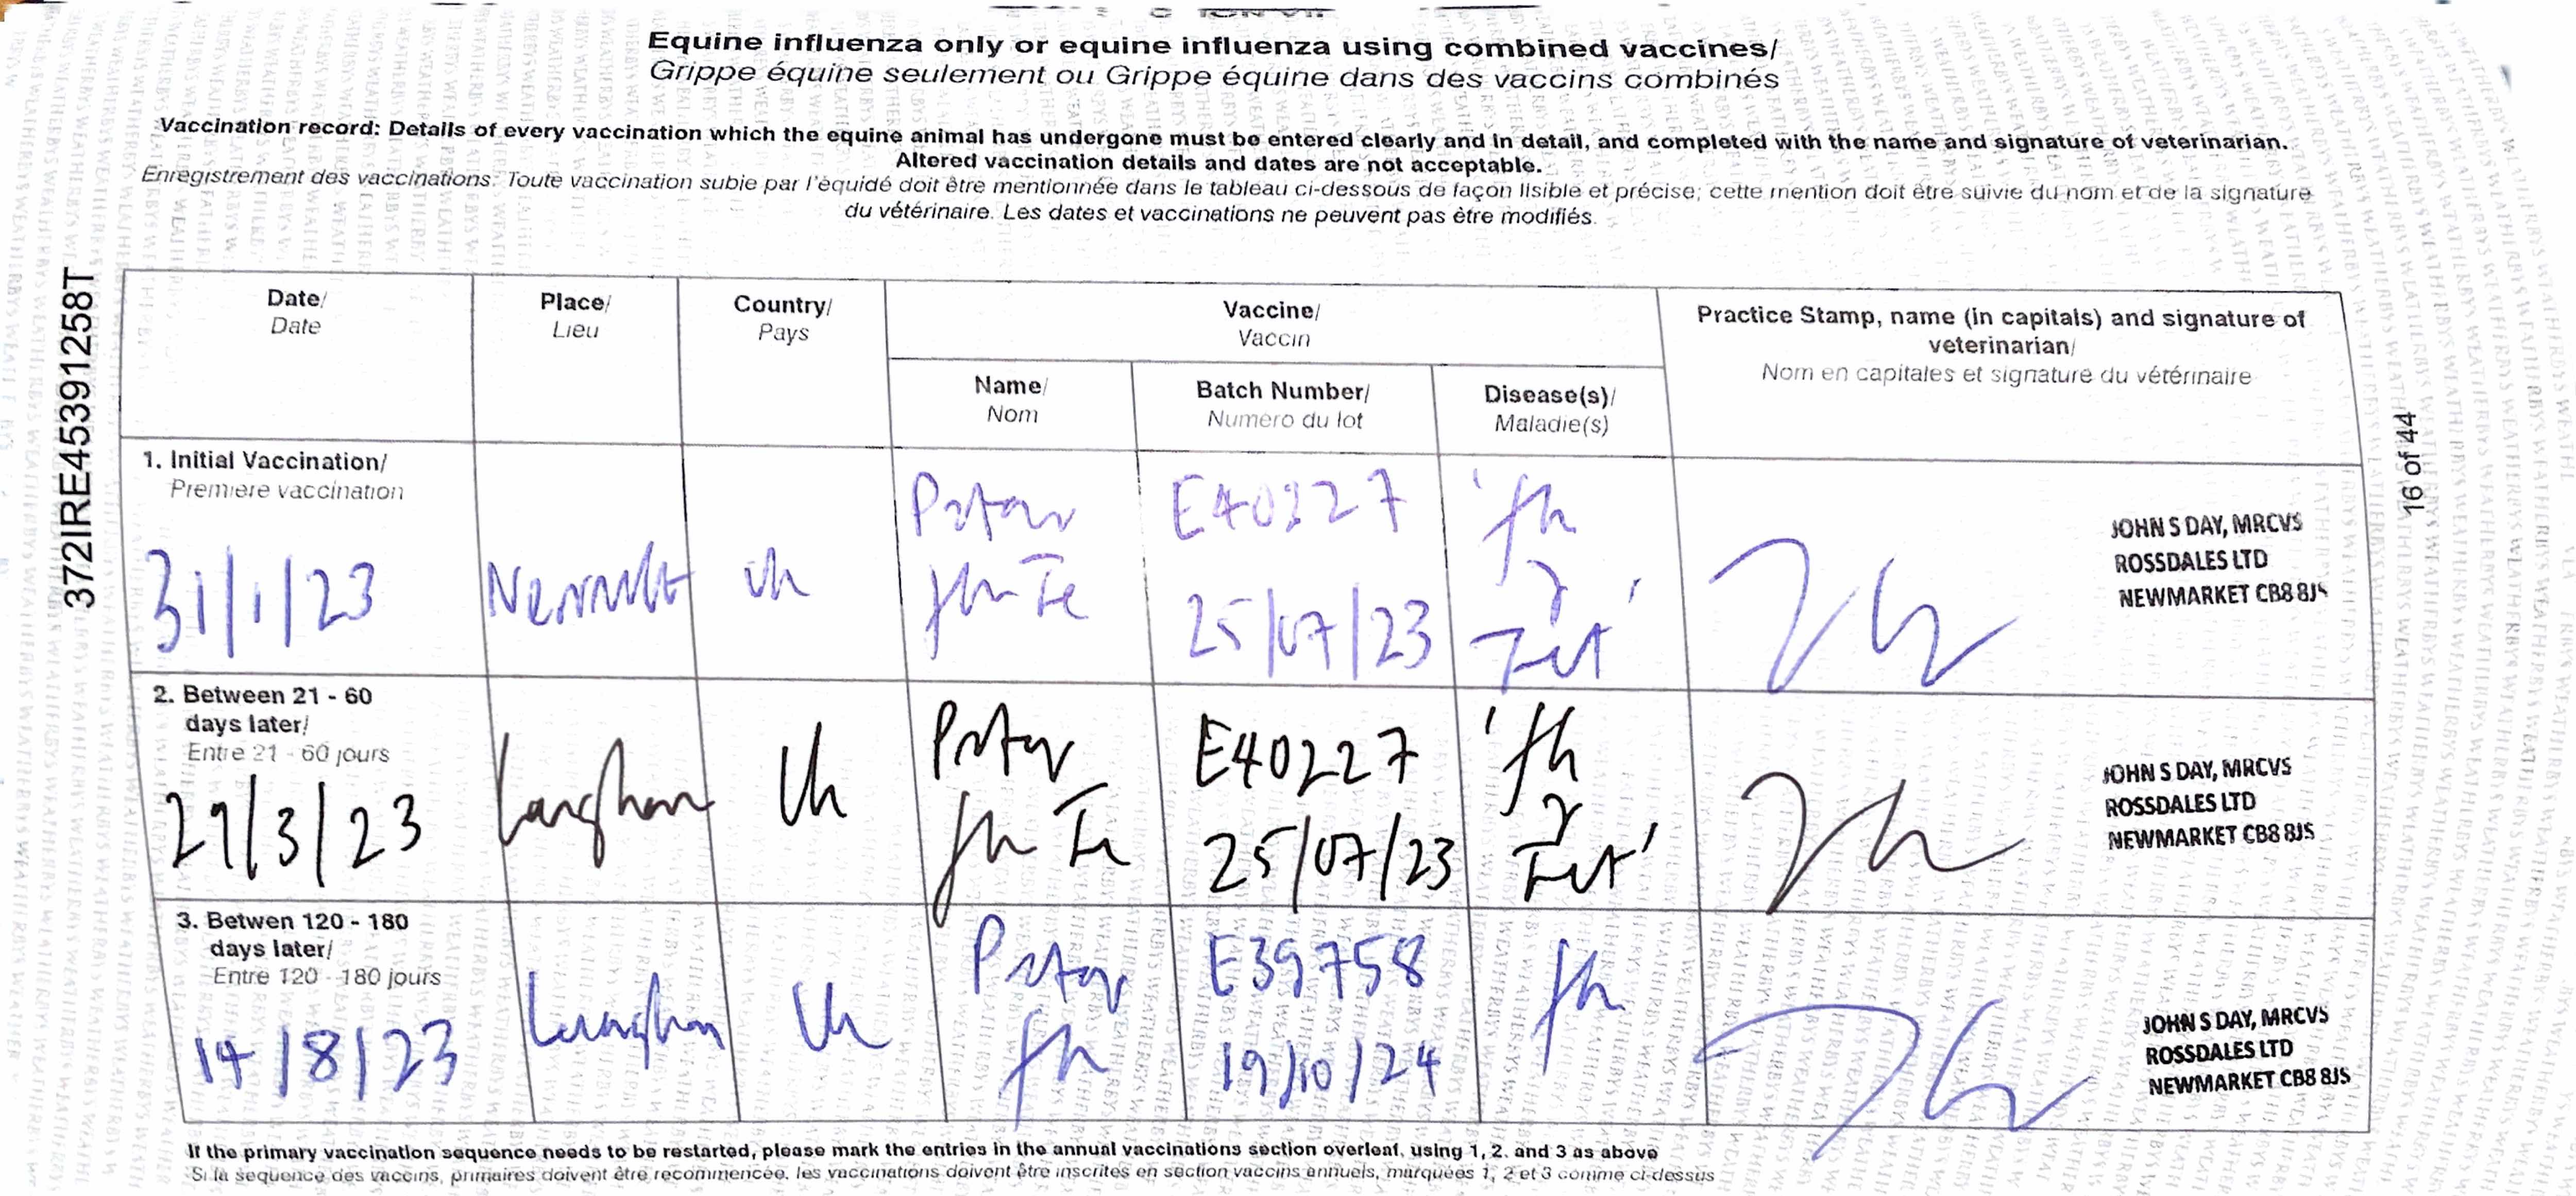 Equine influenza only or equine influenza using combined vaccines/
Grippe équine seulement ou Grippe équine dans des vaccins combinés
Vaccination record: Details of every vaccination which the equine animal has undergone must be entered clearly and in detail, and completed with the name and signature of veterinarian.
Altered vaccination details and dates are not acceptable.
Enregistrement des vaccinations: Toute vaccination subie par l'équidé doit être mentionnée dans le tableau ci-dessous de façon lisible et précise; cette mention doit être suivie du nom et de la signature
du vétérinaire. Les dates et vaccinations ne peuvent pas être modifiés.
372IRE45391258T
16 of 44
Date/
Date
Place/
Lieu
Country/
Pays
Vaccine/
Vaccin
Name/
Nom
Batch Number/
Numero du lot
Disease(s)/
Maladie(s)
Practice Stamp, name (in capitals) and signature of
veterinarian/
Nom en capitales et signature du vétérinaire
1. Initial Vaccination/
Premiere vaccination
31/1/23
Uk
E40227
25/07/23
Flu
&
Tet
JOHN S DAY, MRCVS
ROSSDALES LTD
NEWMARKET CB8 8JS
2. Between 21 - 60
days later/
Entre 21 - 60 jours
/3/23
Langham
Uk
Flu Te
E40227
25/07/23
Flu
&
Tet
JOHN S DAY, MRCVS
ROSSDALES LTD
NEWMARKET CB8 8JS
3. Betwen 120 - 180
days later/
Entre 120 - 180 jours
14/8/23
Langham
Uk
Flu
E39758
19/10/24
Flu
JOHN S DAY, MRCVS
ROSSDALES LTD
NEWMARKET CB8 8JS
If the primary vaccination sequence needs to be restarted, please mark the entries in the annual vaccinations section overleaf, using 1, 2. and 3 as above
Si la sequence des vaccins, primaires doivent être recommencée. les vaccinations doivent être inscrites en section vaccins annuels, marquées 1, 2 et 3 comme ci-dessus